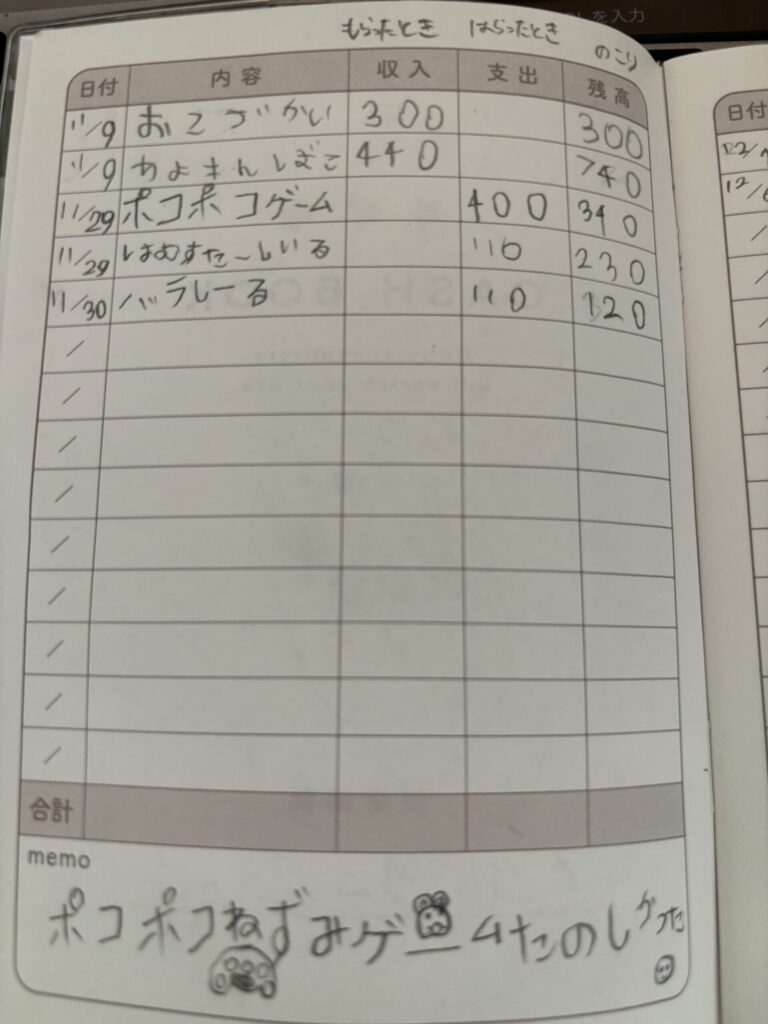 を入力
もらったとき はらったとき のこり
日付 内容 収入 支出 残高
11/9 おこづかい 300 300
11/9 ちょきんばこ 440 740
11/29 ポコポコゲーム 400 340
11/29 はむすたーしいる 110 230
11/30 バラしーる 110 120
/
/
/
/
/
/
/
/
/
合計
memo
ポコポコねずみゲームたのしかった
日付
12/
12/
/
/
/
/
/
/
/
/
/
/